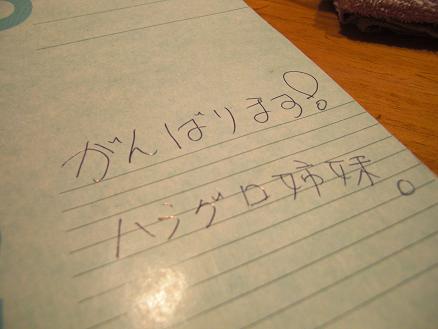 がんばります!
ハングロ姉妹。